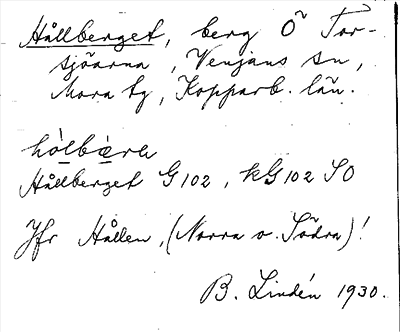 Hållberget, berg Ö Tor-
sjöarna, Venjans sn,
Mora tg, Kopparb. län.
hòlbære
Hållberget G102, kG102 SO
Jfr Hållen, (Norra o. Södra)!
B. Lindén 1930.